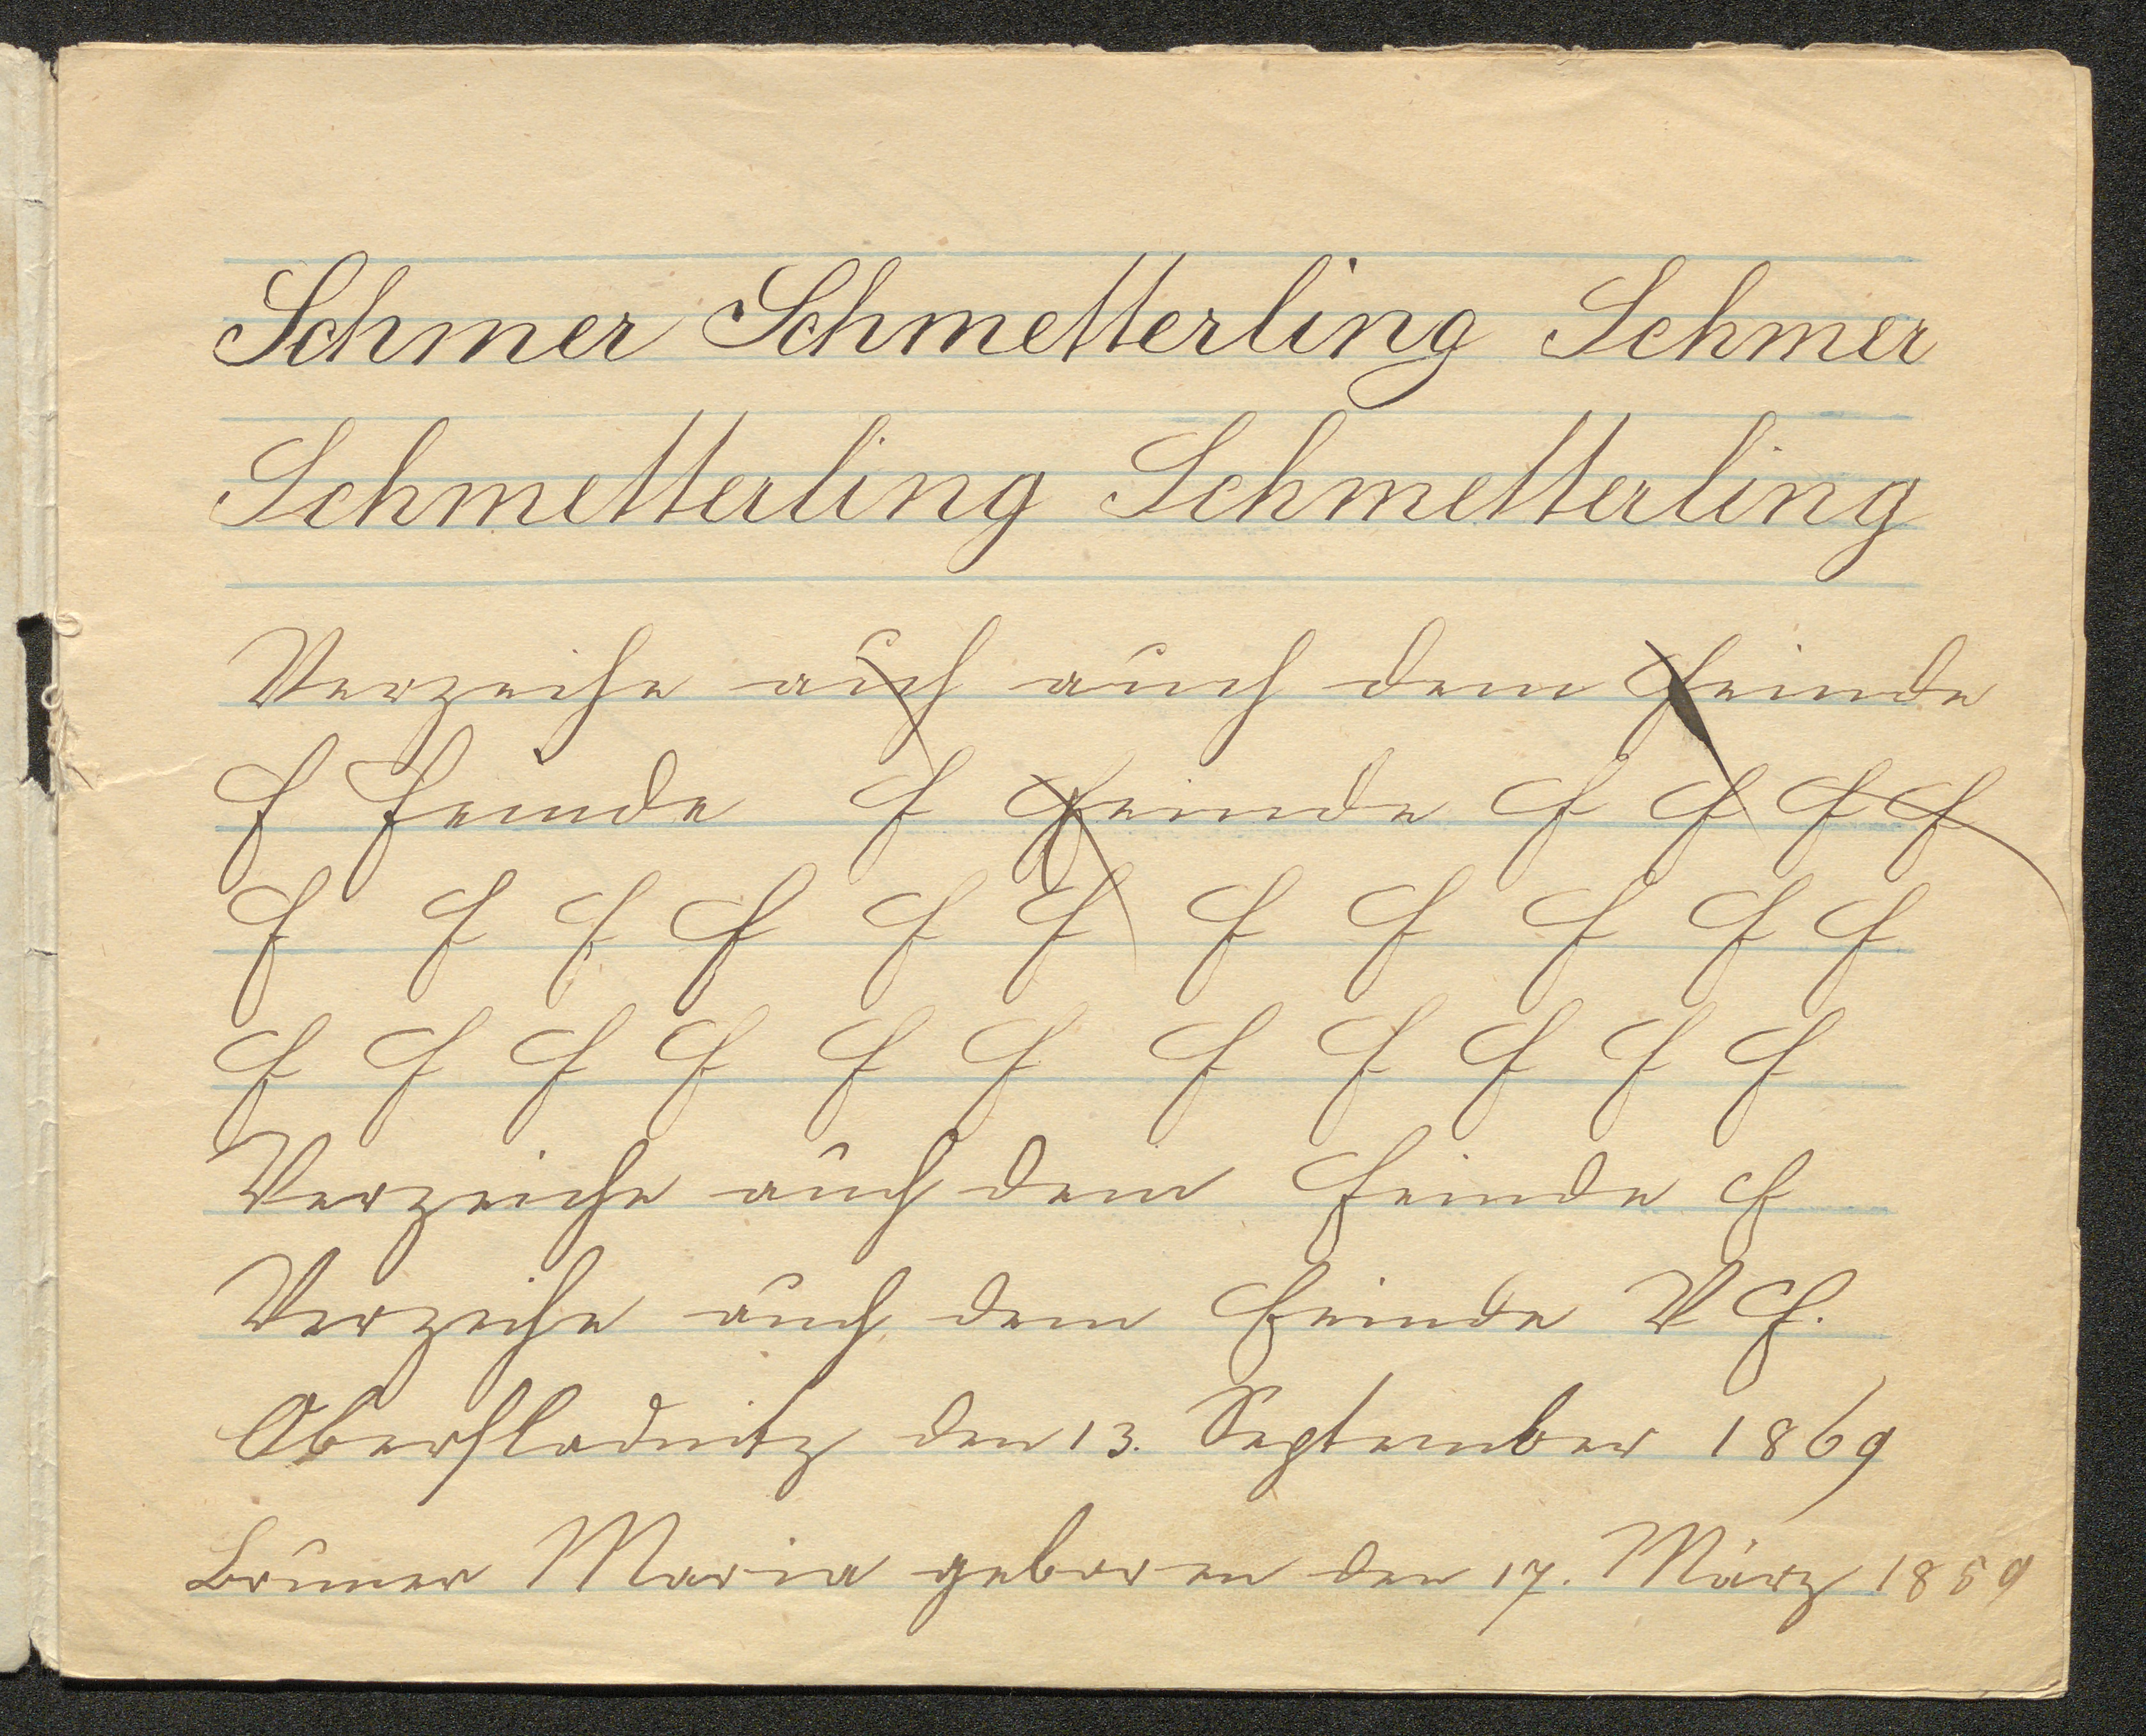 Schmer Schmetterling Schmer
Schmetterling Schmetterling
Verzeihe auch auch dem Feinde
F Feinde F Feinde F F F F
F F F F F F F F F F F
F F F F F F F F F F F
Verzeihe auch dem Feinde F
Verzeihe auch dem Feinde V F.
Oberfladnitz den 13. September 1869
Maria geboren den 17. März 1859